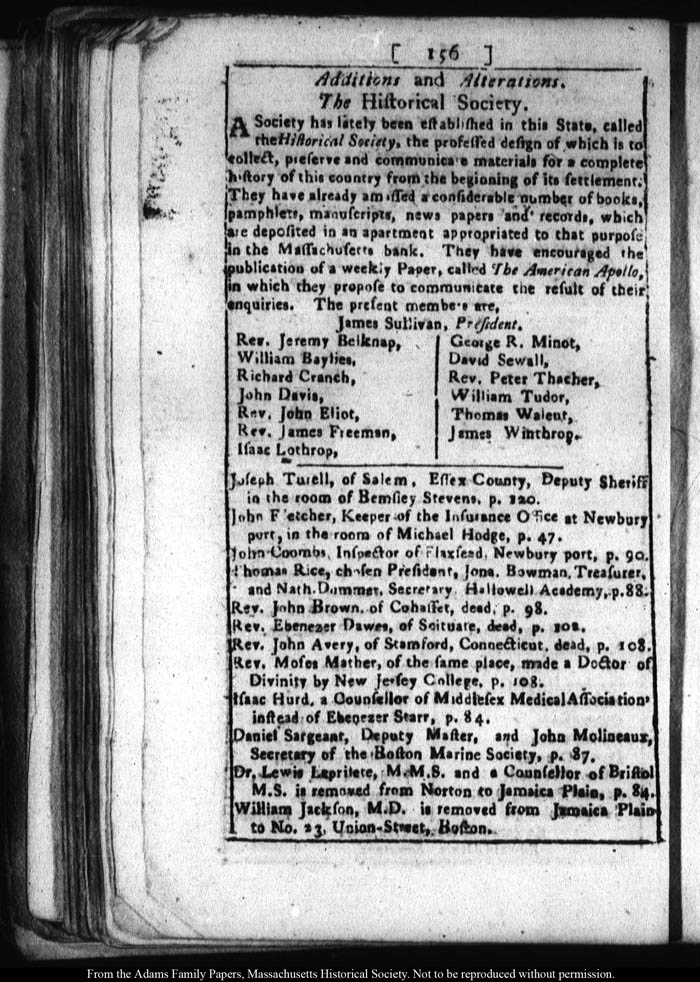 [ 156 ]
Additions and Alterations.
The Hiſtorical Society.
A Society has lately been eſtabliſhed in this State, called
the Hiſtorical Society, the profeſſed deſign of which is to
collect, preſerve and communicate materials for a complete
hiſtory of this country from the beginning of its ſettlement.
They have already amaſſed a conſiderable number of books,
pamphlets, manuſcripts, news papers and records, which
are depoſited in an apartment appropriated to that purpoſe
in the Maſſachuſetts bank. They have encouraged the
publication of a weekly Paper, called The American Apollo,
in which they propoſe to communicate the reſult of their
enquiries. The preſent members are,
James Sullivan, Preſident.
Rev. Jeremy Belknap,
William Baylies,
Richard Cranch,
John Davis,
Rev. John Eliot,
Rev. James Freeman,
Iſaac Lothrop,
George R. Minot,
David Sewall,
Rev. Peter Thacher,
William Tudor,
Thomas Walcut,
James Winthrop.
Joſeph Turell, of Salem, Eſſex County, Deputy Sheriff
in the room of Bemſley Stevens, p. 120.
John Fletcher, Keeper of the Inſurance Office at Newbury
port, in the room of Michael Hodge, p. 47.
John Coombs, Inſpector of Flaxſeed, Newbury port, p. 90.
Thomas Rice, choſen Preſident, Jona. Bowman, Treaſurer,
and Nath. Dummer, Secretary Hallowell Academy, p. 88.
Rev. John Brown, of Cohaſſet, dead, p. 98.
Rev. Ebenezer Dawes, of Scituate, dead, p. 102.
Rev. John Avery, of Stamford, Connecticut, dead, p. 108.
Rev. Moſes Mather, of the ſame place, made a Doctor of
Divinity by New Jerſey College, p. 108.
Iſaac Hurd, a Counſellor of Middleſex Medical Aſſociation
inſtead of Ebenezer Starr, p. 84.
Daniel Sargeant, Deputy Maſter, and John Molineaux,
Secretary of the Boſton Marine Society, p. 87.
Dr. Lewis Leprilete, M.M.S. and a Counſellor of Briſtol
M.S. is removed from Norton to Jamaica Plain, p. 84.
William Jackſon, M.D. is removed from Jamaica Plain
to No. 23, Union-Street, Boſton.
From the Adams Family Papers, Massachusetts Historical Society. Not to be reproduced without permission.